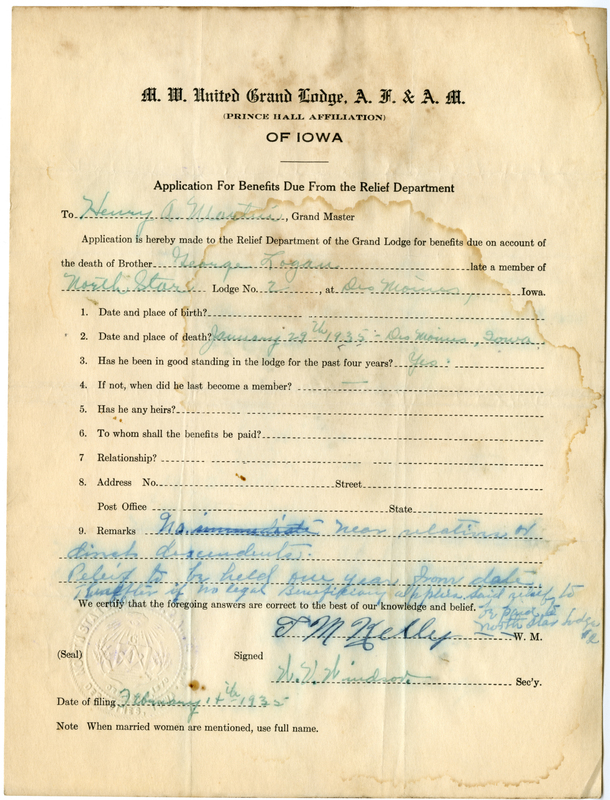 M. W. United Grand Lodge, A. F. & A. M.
(PRINCE HALL AFFILIATION)
OF IOWA
Application For Benefits Due From the Relief Department
To Henry A. , Grand Master
Application is hereby made to the Relief Department of the Grand Lodge for benefits due on account of
the death of Brother George Logan late a member of
North Star Lodge No. 2 , at Des Moines, Iowa.
1. Date and place of birth?
2. Date and place of death? January 29th 1935 - Des Moines, Iowa
3. Has he been in good standing in the lodge for the past four years? Yes.
4. If not, when did he last become a member? —
5. Has he any heirs?
6. To whom shall the benefits be paid?
7 Relationship?
8. Address No. Street
Post Office State
9. Remarks No immediate near relatives or
direct descendents.
Relief to be held one year from date
Thereafter if no legal Beneficiary applies said relief to
be paid to
North Star Lodge
#2
We certify that the foregoing answers are correct to the best of our knowledge and belief.
T M Kelly W. M.
(Seal) Signed
Sec'y.
Date of filing February 14th 1935
Note When married women are mentioned, use full name.